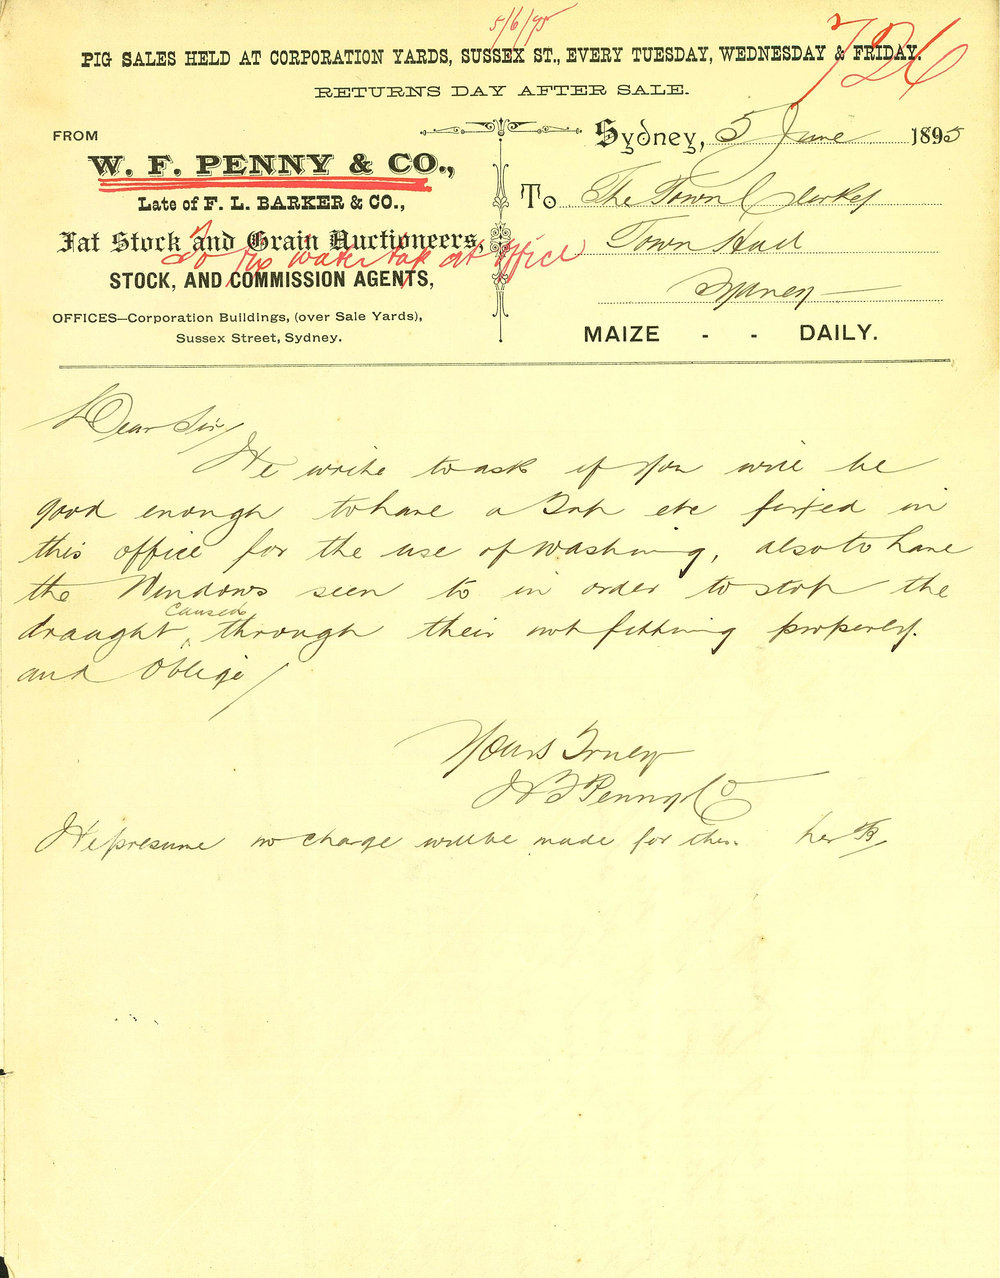 5/6/95
726
PIG SALES HELD AT CORPORATION YARDS, SUSSEX ST., EVERY TUESDAY, WEDNESDAY & FRIDAY.
RETURNS DAY AFTER SALE.
FROM
W. F. PENNY & CO.,
Late of F. L. BARKER & CO.,
Fat Stock and Grain Auctioneers,
To fix water tap at office
STOCK, AND COMMISSION AGENTS,
OFFICES—Corporation Buildings, (over Sale Yards),
Sussex Street, Sydney.
Sydney, 5 June 1895
To The Town Clerk
Town Hall
Sydney
MAIZE - - DAILY.
Dear Sir/
We write to ask if you will be
good enough to have a Tap etc fixed in
this office for the use of washing, also to have
the Windows seen to in order to stop the
draught caused through their not fitting properly.
and Oblige/
Yours Truly
W F Penny & Co
We presume no charge will be made for this. per